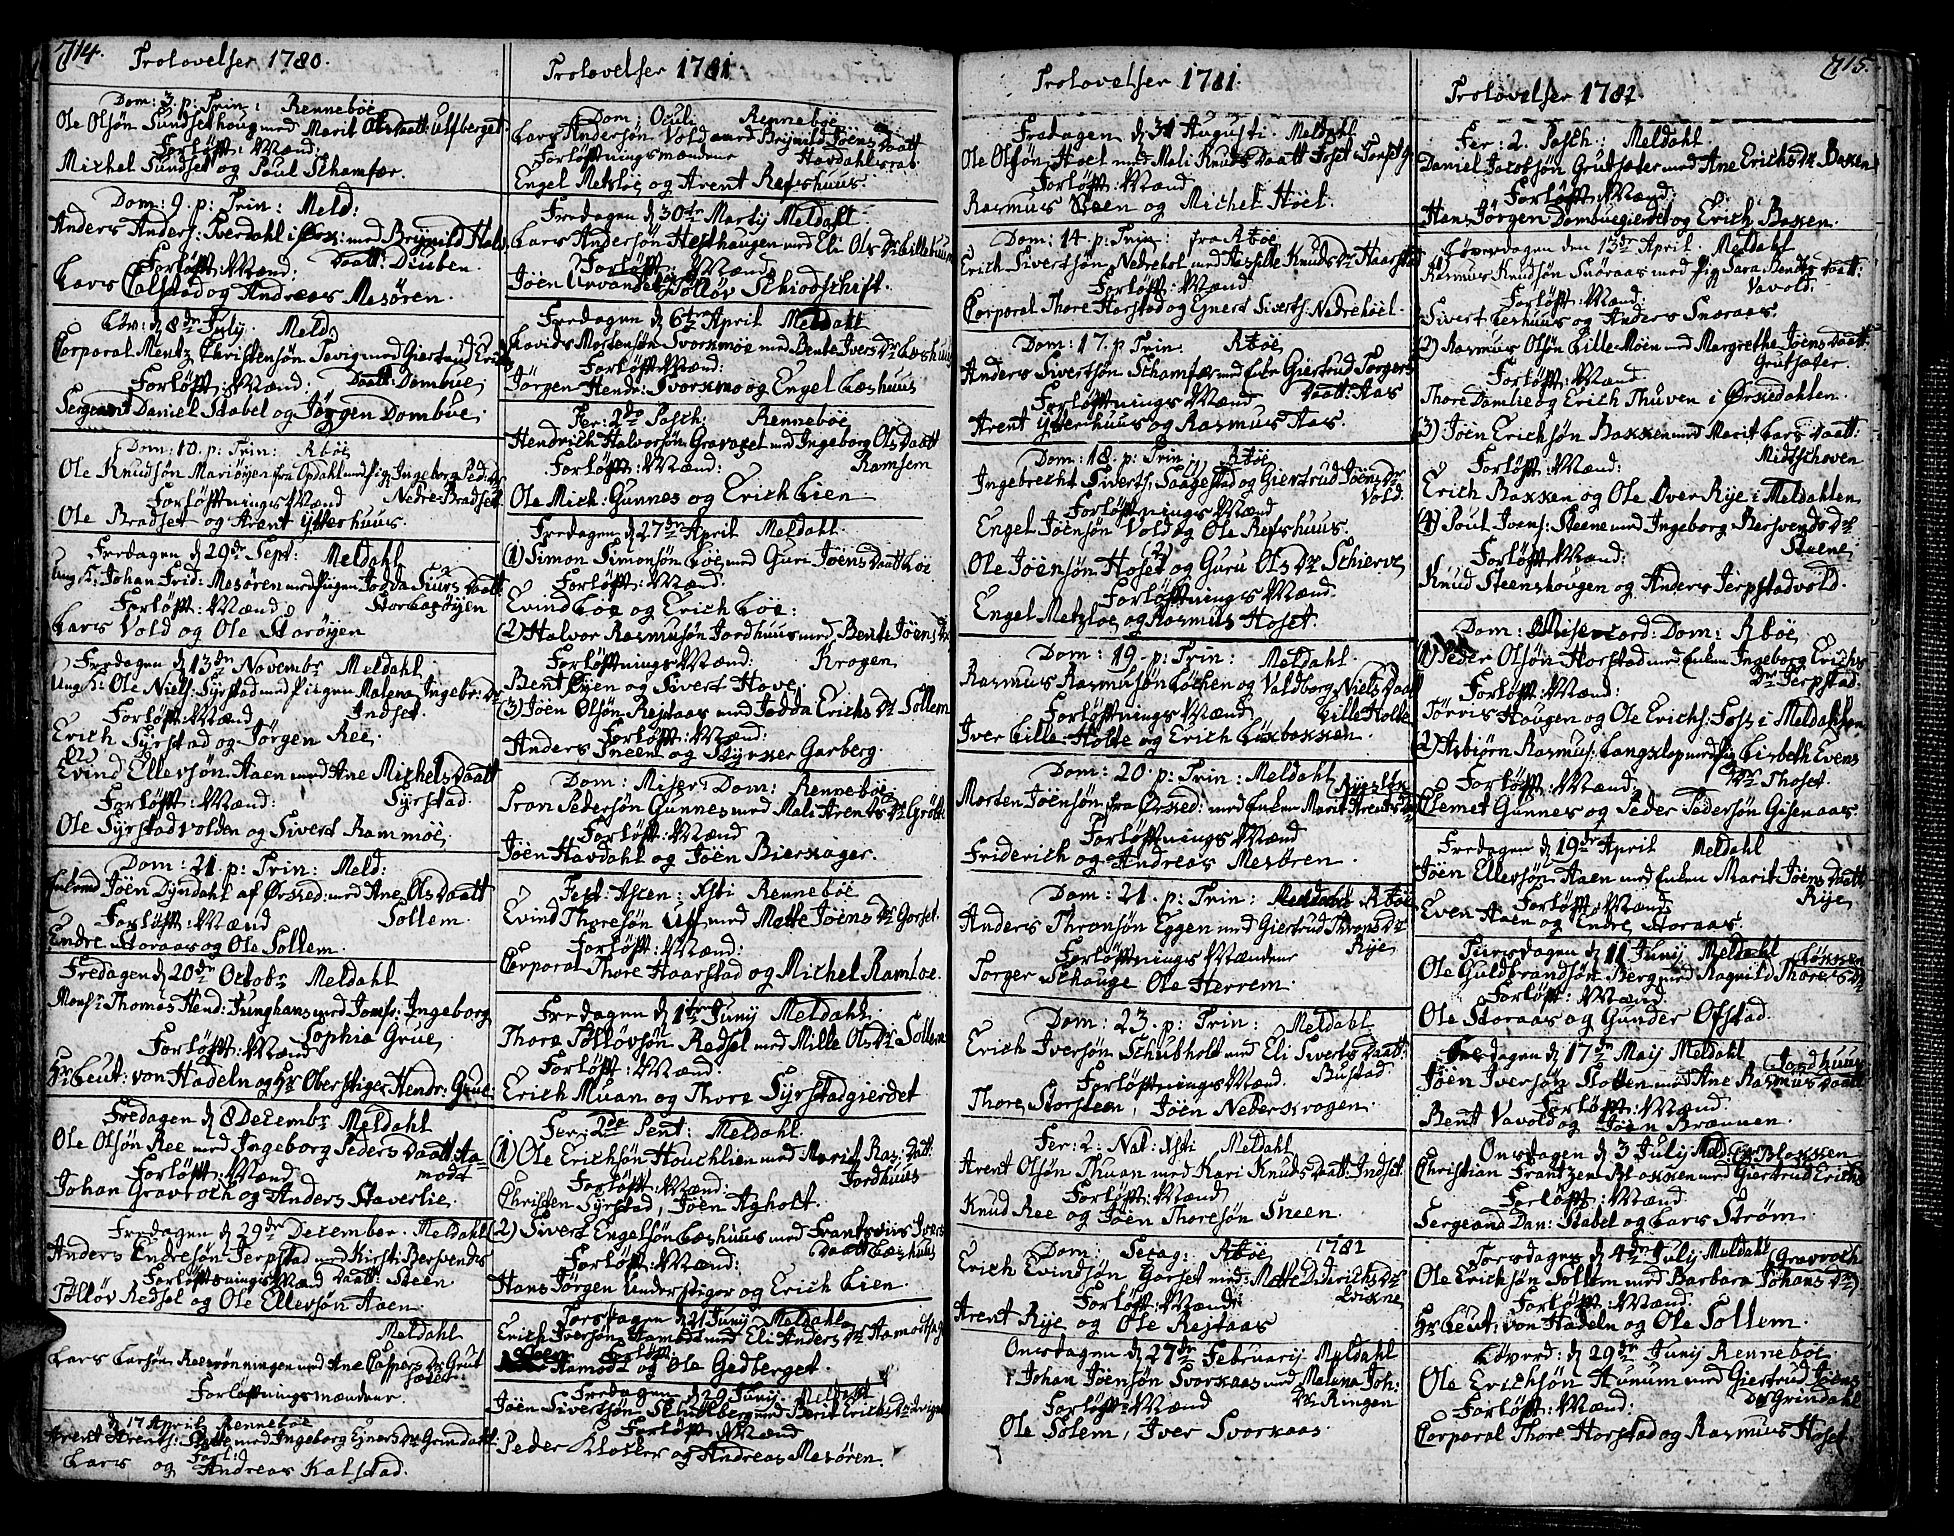 714.
Trolovelser 1780.
Dom: 3. p: Trin: Rennebøe
Ole Olsøn Sundsethoug med Marit Olsdaatt: Ulsberget
Forløfft: Mænd:
Michel Sundset og Poul Schamfær.
Dom: 9. p: Trin: Meld:
Anders Anders: Sverdahl i Ørk: med Brynild Hals
Daatt: Diuben.
Forløfft: Mænd:
Lars Calstad og Andreas Mesøren.
Løv: d 8de July. Meld:
Corporal Mentz Christensøn Tevig med Giertrud Erichs
Forløfft: Mænd: Daatt: Dombue
Sergeant Daniel Stabel og Jørgen Dombue.
Dom: 10. p: Trin: Rbøe
Ole Knudsøn Mariøyen fra Opdahl med Pig Ingeborg Ped: Dr
Forløfftnings Mænd Nedre-Bradset
Ole Bradset og Arent Ytterhuus.
Fredagen d 29de Sept: Meldahl
Ung K: Johan Frid: Mesøren med Pigen Jodda Siurs Daatt:
Forløfft: Mænd Storbasøyen
Lars Vold og Ole Storøyen
Fredagen d 13de Novembr Meldahl
Ung K: Ole Niels: Syrstad med Pirgen Malena Ingebr: Dr
Forløfft: Mænd Indset.
Erich Syrstad og Jørgen Ree.
(2)
Evind Ellevsøn Aaen med Ane Michels Daatt
Forløfft: Mænd: Syrstad.
Ole Syrstadvolden og Sivert Rammoe.
Dom: 21. p: Trin: Meld:
Enkemd Jøen Dyndahl af Ørked: med Ane Ols Daatt
Forløfft: Mænd Sollem.
Endre Storaas og Ole Sollem.
Fredagen d 20de Octobr Meldahl
Monsr: Thomas Hend: Junghans med Jomfr: Ingeborg
Sophia Grue,
Forløfft: Mænd
Hr Leut: von Hadeln og Hr Oberstiger Hendr: Grue.
Fredagen d 8 Decembr Meldahl
Ole Olsøn Ree med Ingeborg Peders Daatt: Aa-
modt
Forløfft: Mænd
Johan Gravroch og Anders Staverlie.
Fredagen d 29de December. Meldahl
Anders Endresøn Jerpstad med Kirsti Bersvends
Forløfftnings Mænd Daatt: Steen
Tølløv Redsel og Ole Ellevsøn Aaen
Meldahl
Lars Larsøn Reerønningen med Ane Caspers Dr Grut
sæter:
Forløfftningsmændene
d 17 April Rennebøe
Arent Arents: med Ingeborg Ejners Dr Grindal:
Forl:
Lars og Andreas Kalstad.
Trolovelser 1781
Dom: Oculi Rennebøe
Lars Andersøn Vold med Brynild Joens Daatt
Forløfftningsmændene Havdahlsvas
Engel Metsløe og Arent Refshuus.
Fredagen d 30te Martij Meldahl.
Lars Andersøn Hesthaugen med Eli Ols Dr Lillebuen
Forløfft: Mænd
Jøen Urvandet Tolløv Schiodschift.
Fredagen d 6te April Meldall
Lavids Mortensøn Svorkmøe med Bente Ivers Dr Leshuus
Forløfft: Mænd:
Jørgen Hendr: Svorkmo og Engel Leshuus
Fer: 2de Pasch: Rennebøe
Hendrich Halvorsøn Gravaset med Ingeborg Ols Daatt
Forløfft: Mænd: Ramsem
Ole Mich: Gunnes og Erich Lien
Fredagen d 27de April Meldahl.
(1) Simon Simonsøn Løe med Guri Joens Daatt Løe
Forløfft: Mænd:
Evind Løe og Erich Løe:
(2) Halvor Rasmusøn Jordhuus med Bente Jøens Dr
Forløfftnings Mænd: Krogen
Bent Øyen og Sivert Hove
(3) Jøen Olsøn Rejtaas med Jodda Erichs Dr Sollem
Forløfft: Mænd:
Anders Sneen og Styrker Garberg.
Dom: Miser: Dom: Rennebøe
Tron Pedersøn Gunnes med Mali Arents Dr Grøtte
Forløfft: Mænd
Jøen Havdahl og Jøen Bierkager.
Fest: Ascen: Xsti Rennebøe
Evind Thoresøn Uff med Mette Jøens Dr Gorset.
Forløfft: Mænd:
Corporal Thore Haarstad og Michel Ramloe.
Fredagen d 1te Junij Meldahl.
Thore Tølløvsøn Redsel med Mille Ols Dr Sollem
Forløfft: Mænd:
Erich Muan og Thore Syrstadgierdet
Fer: 2de Pent: Meldahl.
(1) Ole Erichsøn Houchlien med Marit Ras: Datt:
Forløfft: Mænd: Jordhuus
Christen Syrstad, Jøen Agholt.
2) Sivert Engelsøn Leshuus med Frantsdius Ivers
Daatt Leshuus
Forløfft: Mænd:
Hans Jørgen Understiger og Erich Lien.
Torsdagen d 21 Junij Meldahl
Erich Iversøn Aamodt med Eli Anders Dr Aamodtsag
Forløfft:
Aamodt og Ole Gedberget.
Fredagen d 29 Junij Meldahl
Jøen Sivertsøn Skudlberg med Berit Erichs Dr
Forløfft: Mænd
Peder Klokker og Andreas Mesøren.
Trolovelser 1781.
Fredagen d 31 Augusti Meldahl
Ole Olsøn Høel med Mali Knuds Daatt Foset
Forløfft: Mænd
Rasmus Steen og Michel Høel.
Dom: 14. p: Trin: fra Rbøe
Erich Sivertsøn Nedrehol med Kisselle Knuds Dr Haarstad
Forløfft: Mænd
Corporal Thore Horstad og Egnert Siverts: Nedrehøel.
Dom: 17. p Trin Rbøe
Anders Sivertsøn Schamfær med Enke Giertrud Torgers
Forløfftnings Mænd Daatt: Aas
Arent Ytterhuus og Rasmus Aas.
Dom: 18. p: Trin: Rbøe
Ingebrecht Siverts: Saagestad og Giertrud Jøens Dr
Vold.
Forløfftnings Mænd
Engel Jøensøn Vold og Ole Refshuus.
(2)
Ole Jøensøn Hoset og Guru Ols Dr Schierve
Forløfftnings Mænd.
Engel Metzloe og Rasmus Hoset.
Dom: 19. p: Trin: Meldahl.
Rasmus Rasmusøn Løchen og Valdborg Niels Daatt
Forløfftnings Mænd Lille Holte
Iver Lille-Holte og Erich Løxbakken.
Dom: 20. p: Trin: Meldahl
Morten Jøensøn fra Ørked: med Enken Marit Arents Dr
Forløfftnings Mænd
Friderich og Andreas Mesøren.
Dom: 21. p: Trin: Rbøe
Anders Thronsøn Eggen med Giertrud Throns Dr
Rye,
Forløfftnings Mændene
Torger Schauge Ole Herrem.
Dom: 23. p: Trin: Meldahl
Erich Iversøn Schubholt med Eli Siverts Daatt:
Forløfftnings Mænd. Bustad
Thore Storsteen, Jøen Nederkrogen.
Fer: 2. Nat: Xsti Meldahl
Arent Olsøn Thuan med Kari Knuds Daatt: Indset.
Forløfft: Mænd
Knud Ree og Jøen Thoresøn Sneen.
Dom: Sexag: Rbøe 1782
Erich Evindsøn Gorset med: Mette Didrichs Dr
Forløfft: Mænd: Evikne
Arent Rye og Ole Rejtaas
Onsdagen d 27de Februarij Meldahl
Johan Jøensøn Svorkaas med Malena Joh:
Forløfft: Mænd Dr Ringen
Ole Solem, Iver Svorkaas.
715.
Trolovelser 1782.
Fer: 2. Pasch: Meldahl
Daniel Jacobsøn Grutsæter med Ane Erichs Dr Bakken
Forløfft: Mænd:
Hans Jørgen Dombuegierdet og Erich Bakken.
Løverdagen den 13de April. Meldahl
Rasmus Knudsøn Snøraas med Pig Sara Bendts Daatt:
Vavold.
Forløfft: Mænd:
Sivert Leshuus og Anders Snøraas.
2) Rasmus Olsøn Lille-Moen med Margrethe Jøens Daatt:
Grutsæter
Forløfft: Mænd:
Thore Damlie og Erich Thuven i Ørkedahlen.
(3) Jøen Erichsøn Bakken med Marit Lars Daatt:
Midtschoven
Forløfft: Mænd:
Erich Bakken og Ole Over Rye i Meldahlen
(4) Poul Joens: Steene med Ingeborg Bersvends Dr
Forløfft: Mænd: Steene
Knud Steenshougen og Anders Jerpstadvold.
Dom: Misericord: Dom: Rbøe
(1) Peder Olsøn Horstad med Enken Ingeborg Erichs
Dr Jerpstad.
Forløfft: Mænd:
Torris Hougen og Ole Erichs: Foss i Meldahlen
(2) Asbiørn Rasmus: Langklop med Pig Lisbeth Evens
Forløfft: Mænd: Dr Thoset.
Clemet Gunnes og Peder Pedersøn Gisenaas.
Fredagen d 19de April Meldahl
Jøen Ellevsøn Aaen med Enken Marit Jøens Daatt:
Forløfft: Mænd: Rye,
Even Aaen og Endre Storaas.
Tiirsdagen d 11 Junij Meldahl Løkken
Ole Guldbrandsøn Berg med Ragnild Thores Dr
Forløfft: Mænd
Ole Storaas og Gunder Ofstad.
Fredagen d 17de Maij Meldahl
Jordhuus
Jøen Iversøn Slotten med Ane Rasmus Daatt
Forløfft: Mænd:
Bent Vavold og Jøen Brønnen.
Onsdagen d 3 Julij Bløkken
Christian Frantzen Blokken med Giertrud Erichs
Forløfft: Mænd:
Sergeand Dan: Stabel og Lars Strøm.
Torsdagen d 4de July Meldahl Gravroch
Ole Erichsøn Sollem med Barbara Johans Dr
Forløfft: Mænd:
Hr Leut: von Hadeln og Ole Sollem.
Løverd: d 29de Junij Rennebøe.
Ole Erichsøn Hunum med Giertrud Jøens
Forløfft: Mænd: Dr Grindahl
Corporal Thore Horstad og Rasmus Hoset.